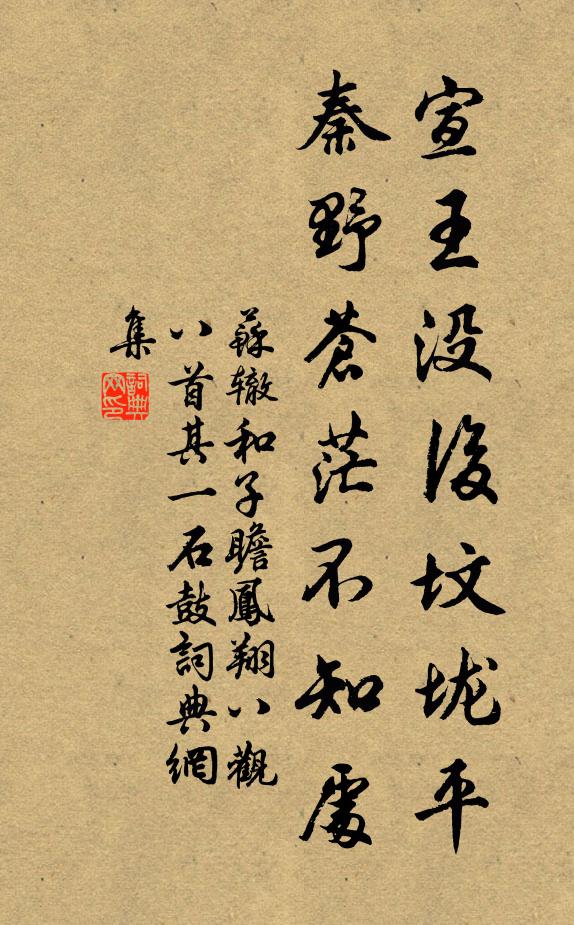 宣王没後坟垅平
秦野蒼茫不知處
蘇辙和子瞻鳳翔八觀
八首其一石鼓詞典網
集
詞典
网印